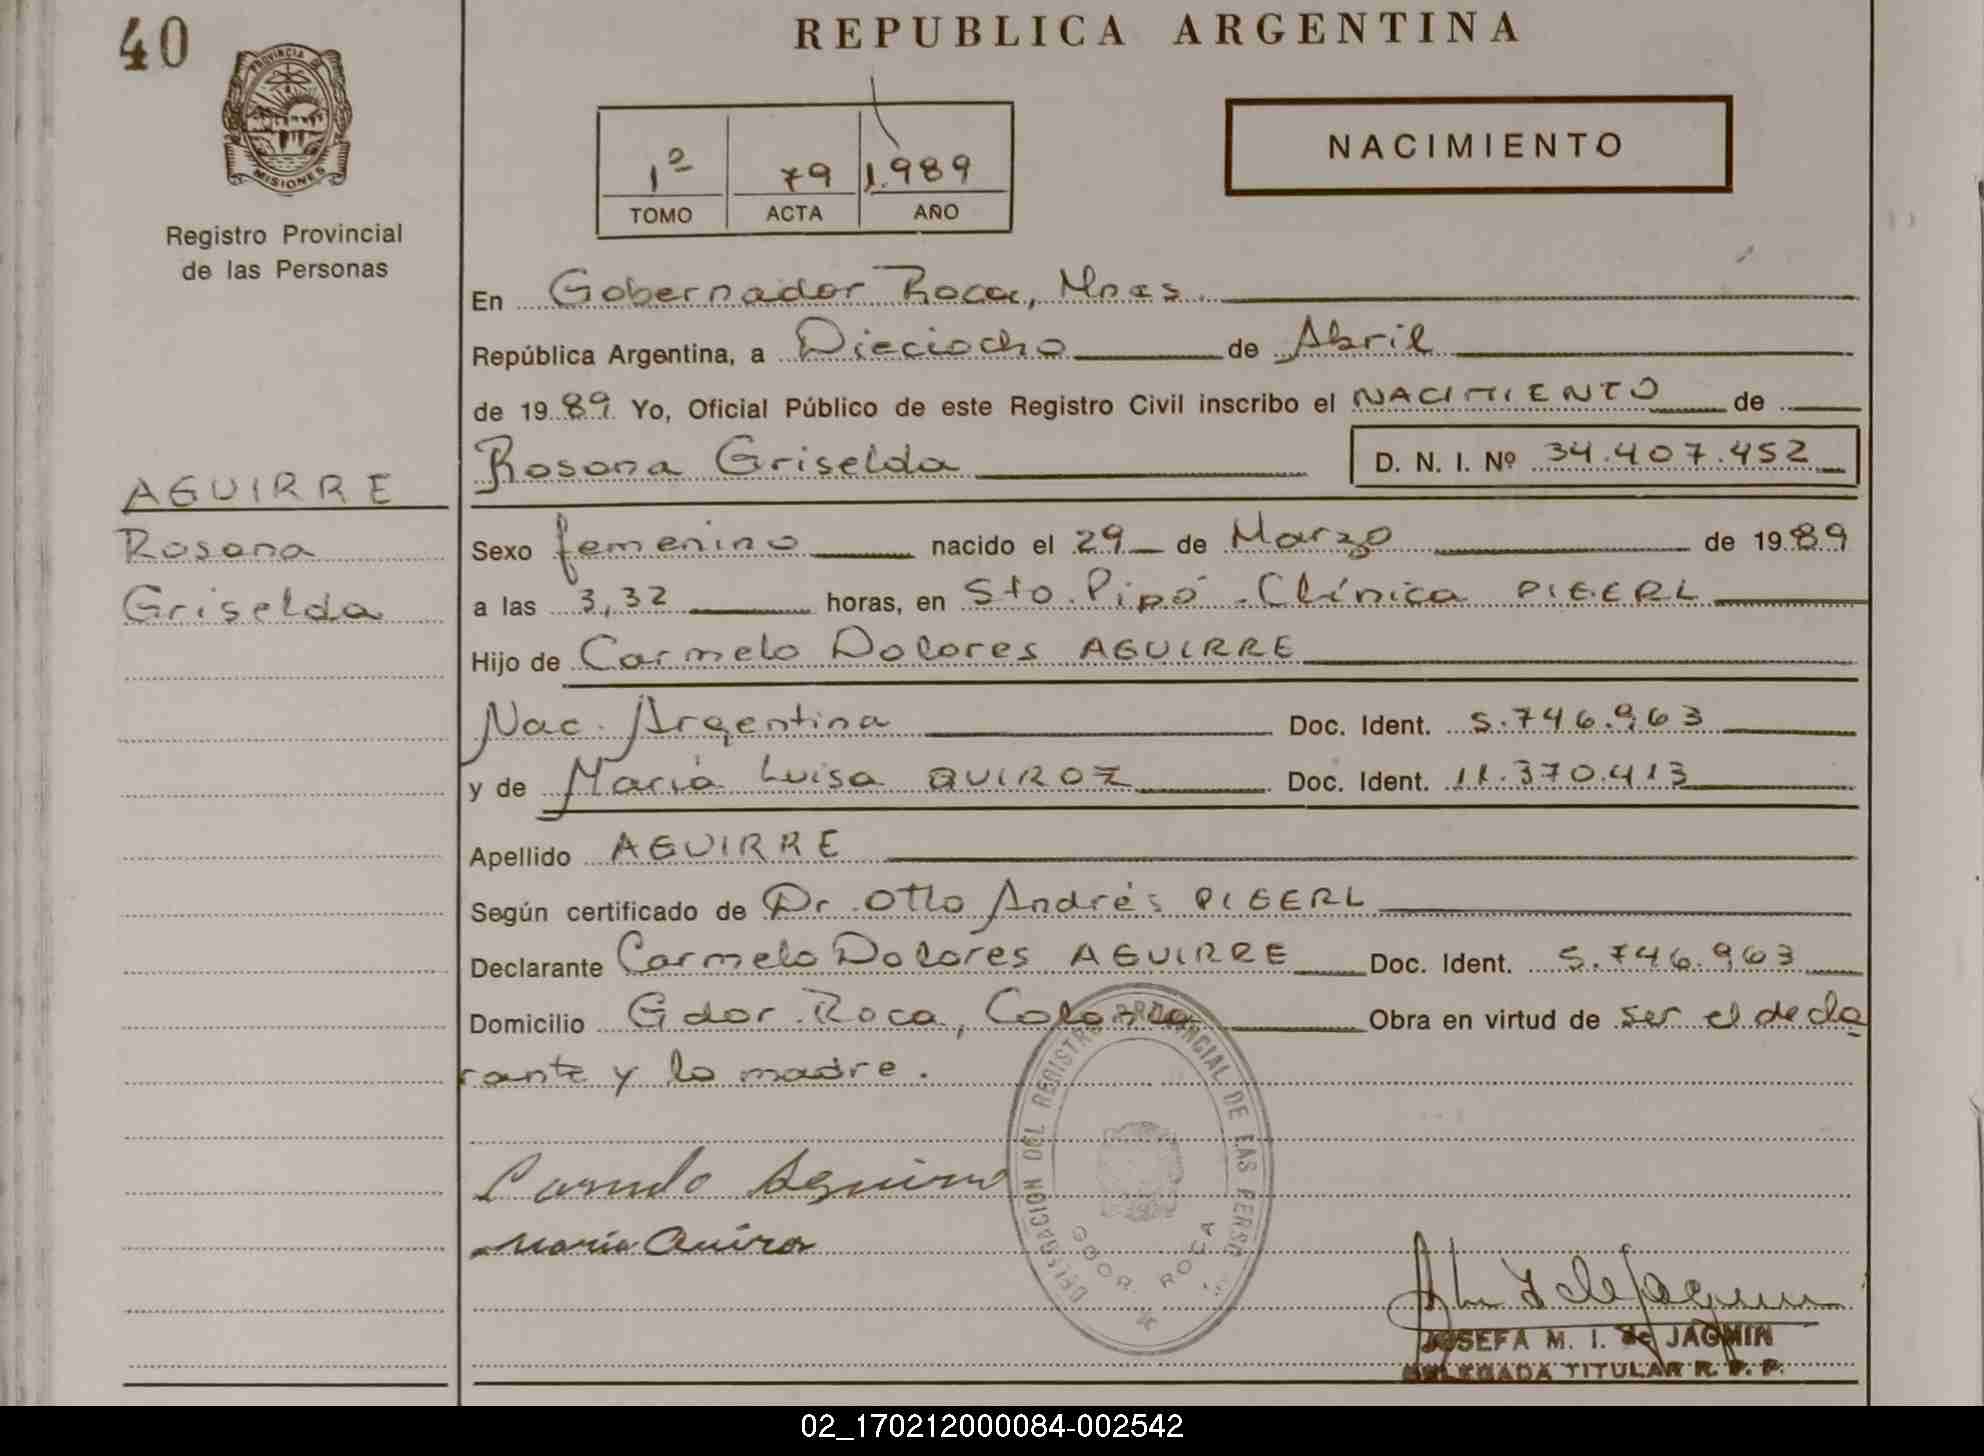 40
REPUBLICA ARGENTINA
PROVINCIA DE
MISIONES
Registro Provincial
de las Personas
1º 79 1.989
TOMO ACTA AÑO
NACIMIENTO
En Gobernador Roca, Mnes.
República Argentina, a Dieciocho de Abril
de 1989 Yo, Oficial Público de este Registro Civil inscribo el NACIMIENTO de
Rosana Griselda D. N. I. Nº 34.407.452
AGUIRRE
Rosana
Griselda
Sexo femenino nacido el 29 de Marzo de 1989
a las 3,32 horas, en Sto. Pipó - Clínica PIGERL
Hijo de Carmelo Dolores AGUIRRE
Nac. Argentina Doc. Ident. 5.746.963
y de María Luisa QUIROZ Doc. Ident. 11.370.413
Apellido AGUIRRE
Según certificado de Dr. Otto Andrés PIGERL
Declarante Carmelo Dolores AGUIRRE Doc. Ident. 5.746.963
Domicilio Gdor. Roca, Colonia Obra en virtud de ser el decla
rante y la madre.
DELEGACION DEL REGISTRO PROVINCIAL DE LAS PERSONAS
GDOR. ROCA
Carmelo Aguirre
María Quiroz
JOSEFA M. I. de JAGMIN
DELEGADA TITULAR R. P. P.
02_170212000084-002542